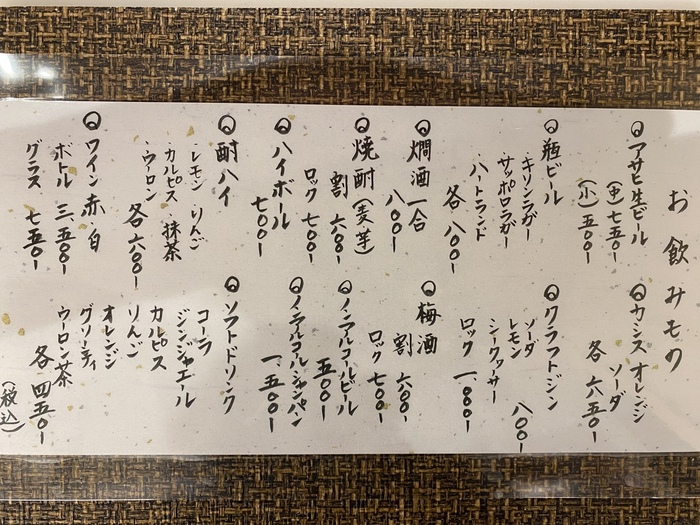 お飲みもの
◎アサヒ生ビール
(中)七五〇ー
(小)五〇〇ー
◎瓶ビール
キリンラガー
サッポロラガー
・ハートランド
各 八〇〇ー
◎燗酒一合
八〇〇ー
◎焼酎(麦芋)
割 六〇〇ー
ロック 七〇〇ー
◎ハイボール
七〇〇ー
◎酎ハイ
レモン・りんご
カルピス・抹茶
・ウーロン
各 六〇〇ー
◎ワイン 赤・白
ボトル 三、五〇〇ー
グラス 七五〇ー
◎カシスオレンジ
ソーダ
各 六五〇ー
◎クラフトジン
ソーダ
レモン 八〇〇ー
シークヮサー
ロック 一、〇〇〇ー
◎梅酒
割 六〇〇ー
ロック 七〇〇ー
◎ノンアルコールビール
五〇〇ー
◎ノンアルコールシャンパン
一、五〇〇ー
◎ソフトドリンク
コーラ
ジンジャエール
カルピス
りんご
オレンジ
グリーンティ
ウーロン茶
各 四五〇ー
(税込)